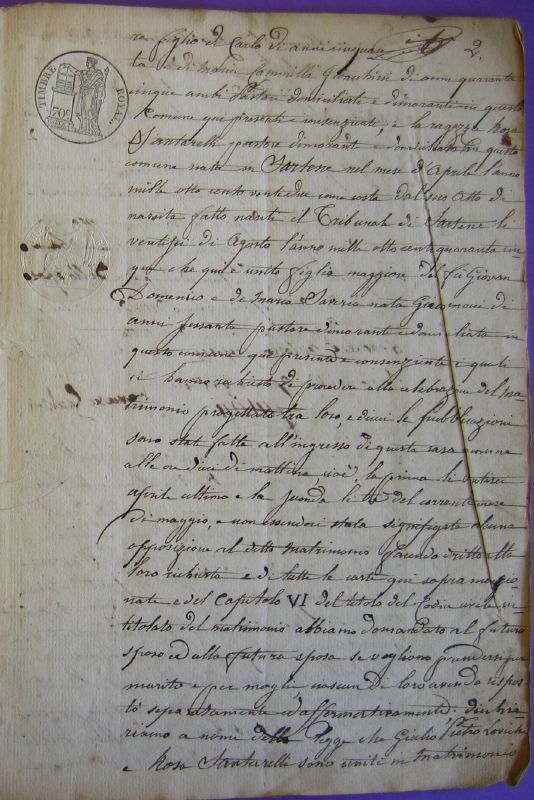 TIMBRE ROYAL
70c
2.
ra figlio di Carlo di anni cinquan
ta e di Maria Cammilla Giacchini di anni quaranta
cinque ambi Pastori domiciliati e dimoranti in questo
Comune qui presenti e consenzienti, e la ragazza Rosa
Santarelli pastore dimorante e domiciliata in questo
comune nata in Sartene nel mese di Aprile l'anno
mille otto cento venti due come costa dal suo Atto di
nascita fatto avanti il Tribunale di Sartene li
ventisei di Agosto l'anno mille otto cento quaranta cin
que che qui è unito figlia maggiore del fu Giovan
Domenico e di Maria Saveria nata Giacomoni di
anni sessanta pastore dimorante e domiciliata in
questo comune qui presente e consenziente i quali
ci hanno richiesto di procedere alla celebrazione del Ma
trimonio progettato tra loro, e di cui le pubblicazioni
sono state fatte all'ingresso di questa casa comuna
alle ore dieci di mattina, cioè, la prima li
aprile ultimo e la seconda li tre del corrente mese
di maggio, e non essendoci stata significata alcuna
opposizione al detto Matrimonio facendo dritto alla
loro richiesta e di tutte le carte qui sopra menzio
nate e del Capitolo VI del titolo del Codice civile in
titolato del matrimonio abbiamo domandato al futuro
sposo ed alla futura sposa se vogliono prendersi per
marito e per moglie, ciascun di loro avendo rispos
to separatamente ed affermativamente. dichia
riamo a nome della legge che Giulio Pietro Lovichi
e Rosa Santarelli sono uniti in Matrimonio